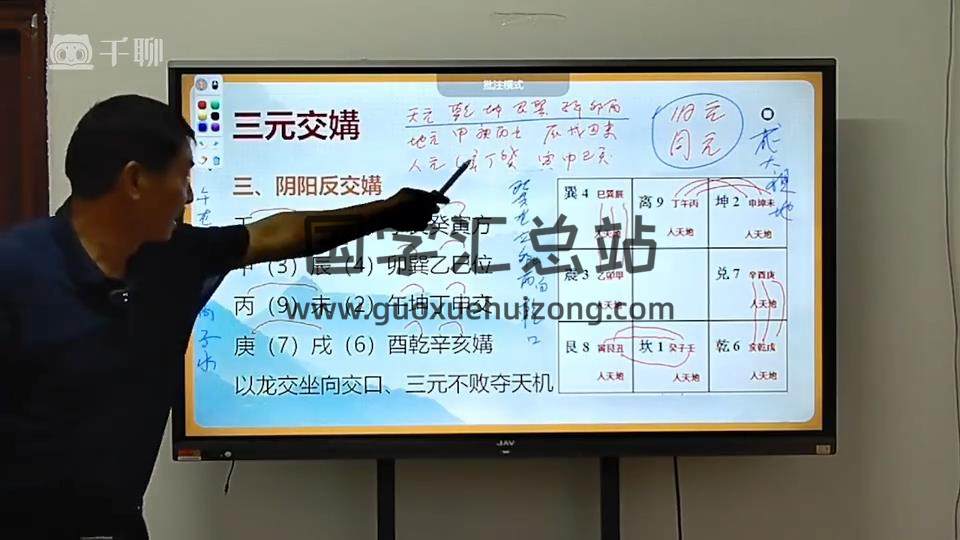 千聊
批注模式
三元交媾
天元 乾坤艮巽 子午卯酉
地元 甲庚丙壬 辰戌丑未
人元 乙辛丁癸 寅申巳亥
三、阴阳反交媾
癸寅方
(3)辰(4)卯巽乙巳位
丙(9)未(2)午坤丁申交
庚(7)戌(6)酉乾辛亥媾
以龙交坐向交口、三元不败夺天机
巽 4 巳巽辰
人天地
离 9 丁午丙
人天地
坤 2 申坤未
人天地
震 3 乙卯甲
人天地
兑 7 辛酉庚
人天地
艮 8 寅艮丑
人天地
坎 1 癸子壬
人天地
乾 6 亥乾戌
人天地
国学汇总站
www.guoxuehuizong.com
JAV